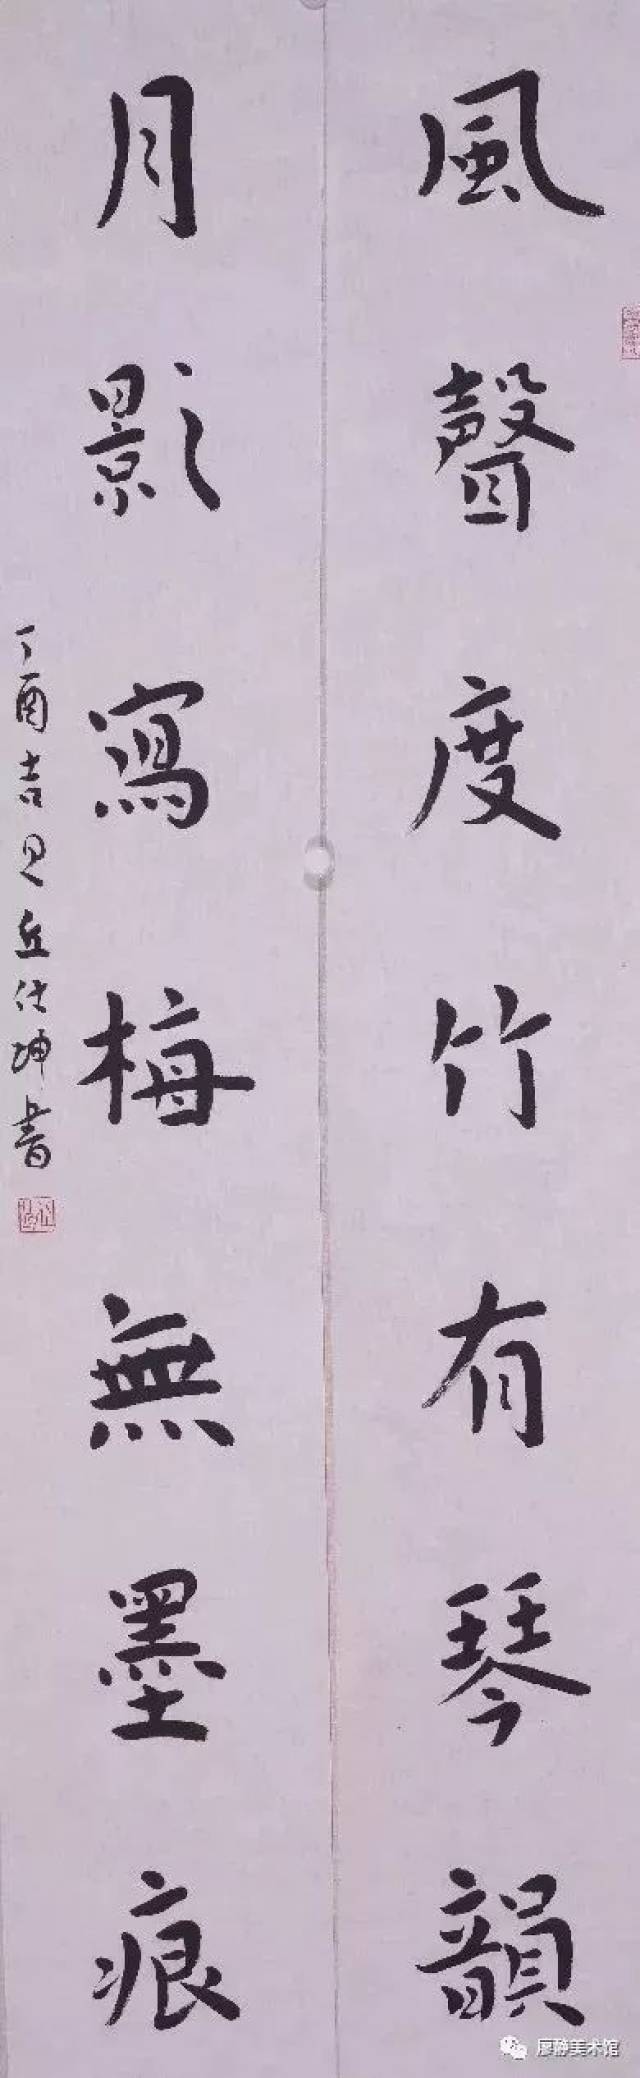 風聲度竹有琴韻
月影寫梅無墨痕
丁酉吉見丘仕坤書
廖静美术馆